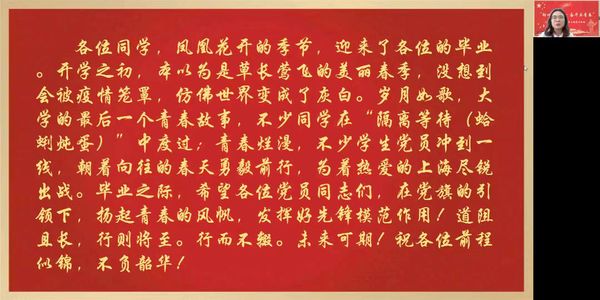 各位同学，凤凰花开的季节，迎来了各位的毕业
。开学之初，本以为是草长莺飞的美丽春季，没想到
会被疫情笼罩，仿佛世界变成了灰白。岁月如歌，大
学的最后一个青春故事，不少同学在“隔离等待（蛤
蜊炖蛋）”中度过；青春烂漫，不少学生党员冲到一
线，朝着向往的春天勇毅前行，为着热爱的上海尽锐
出战。毕业之际，希望各位党员同志们，在党旗的引
领下，扬起青春的风帆，发挥好先锋模范作用！道阻
且长，行则将至。行而不辍。未来可期！祝各位前程
似锦，不负韶华！